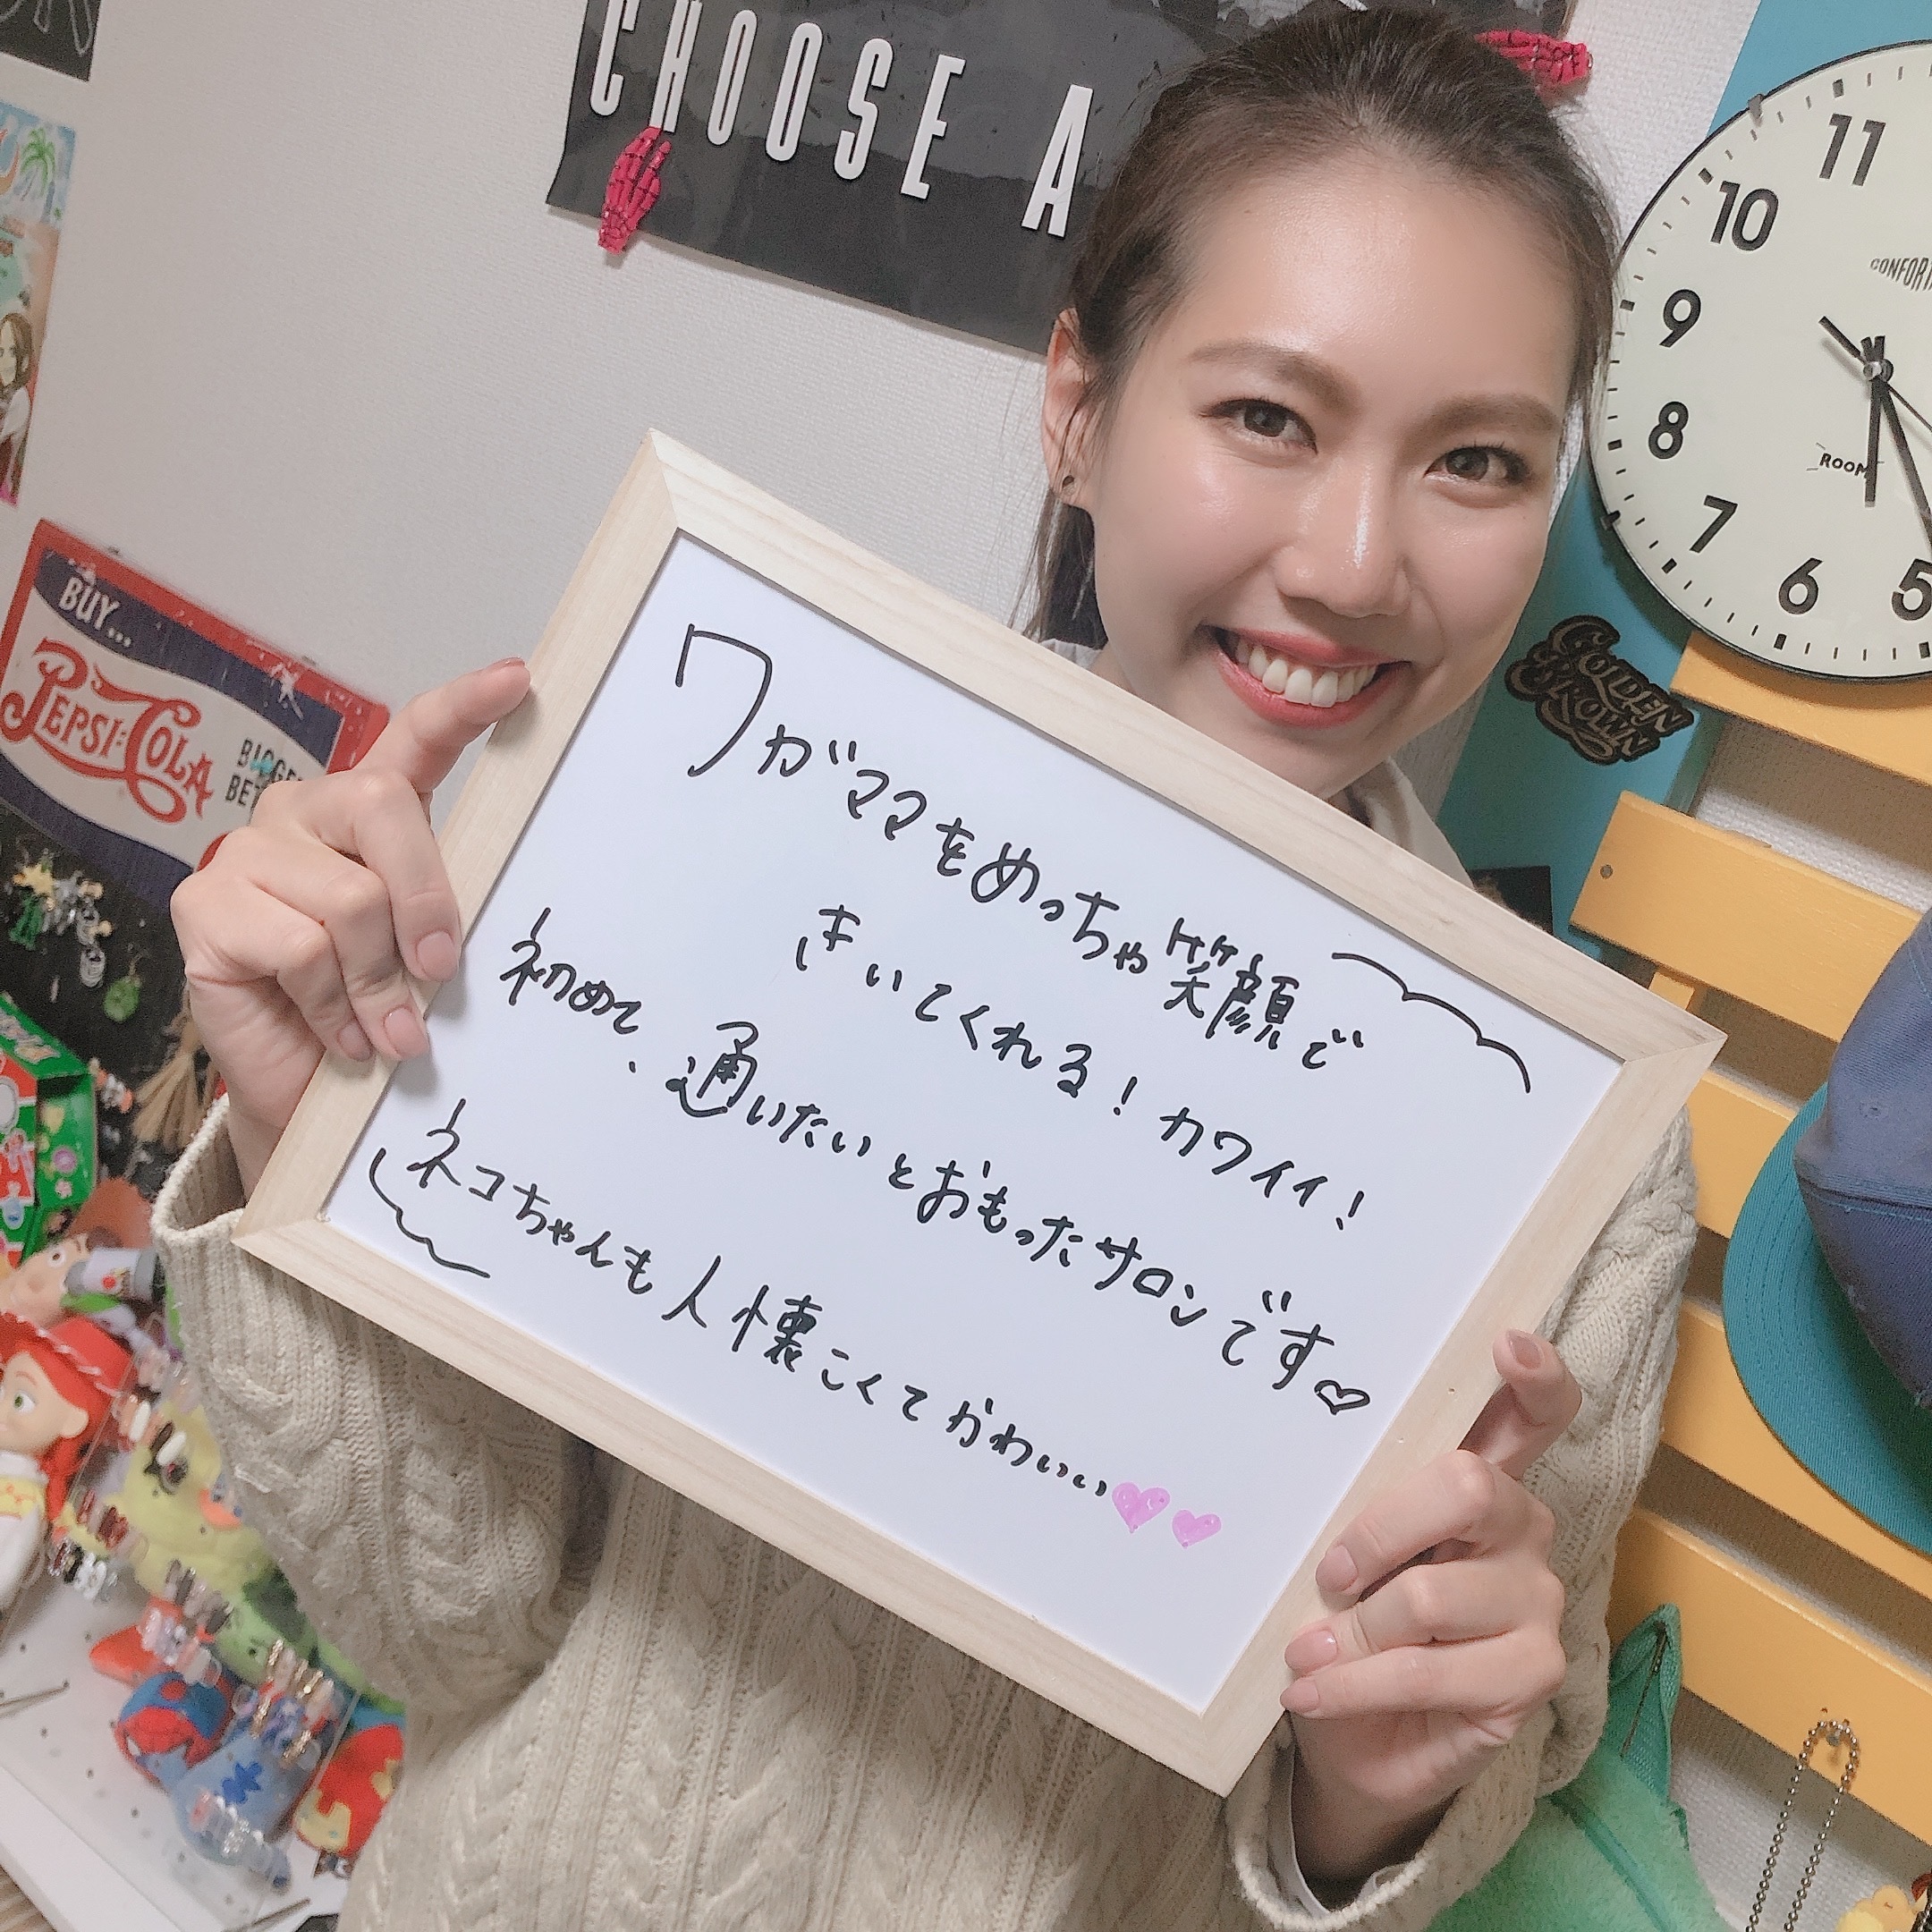 CHOOSE A
11
10
9
8
7
6
5
ROOM
GOLDEN
CROWN
BUY...
PEPSI:COLA
ワガママをめっちゃ笑顔で
きいてくれる！カワイイ！
初めて、通いたいとおもったサロンです♡
ネコちゃんも人懐こくてかわいい♥♥